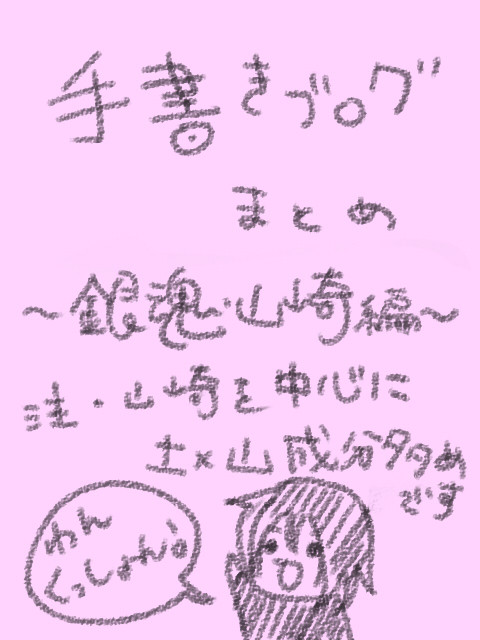 手書きブログ
まとめ
～銀魂・山崎編～
注・山崎を中心に
土×山成分多め
です
わん
くっしょん。